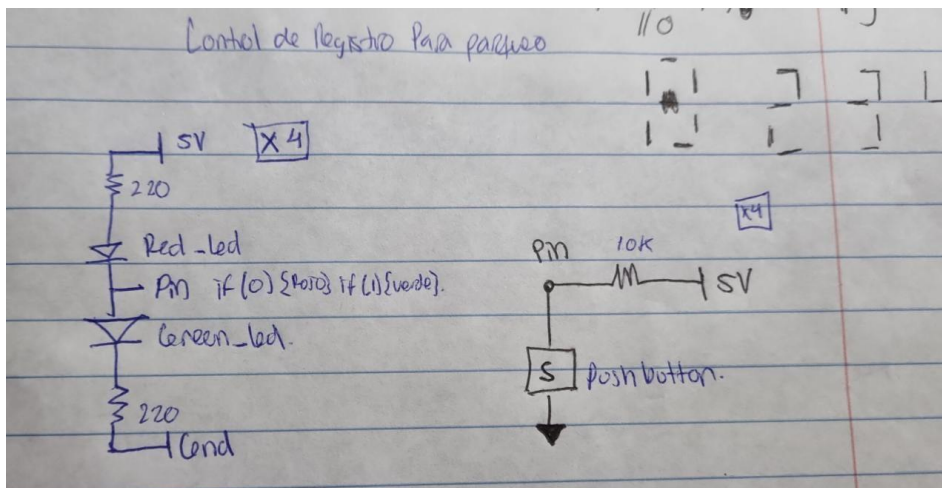 Control de Registro Para parqueo
5V
X 4
220
Red_led
Pin if(0){Rojo} if(1){verde}.
Green_led.
220
Gnd
X4
Pin
10K
5V
S
Push button.